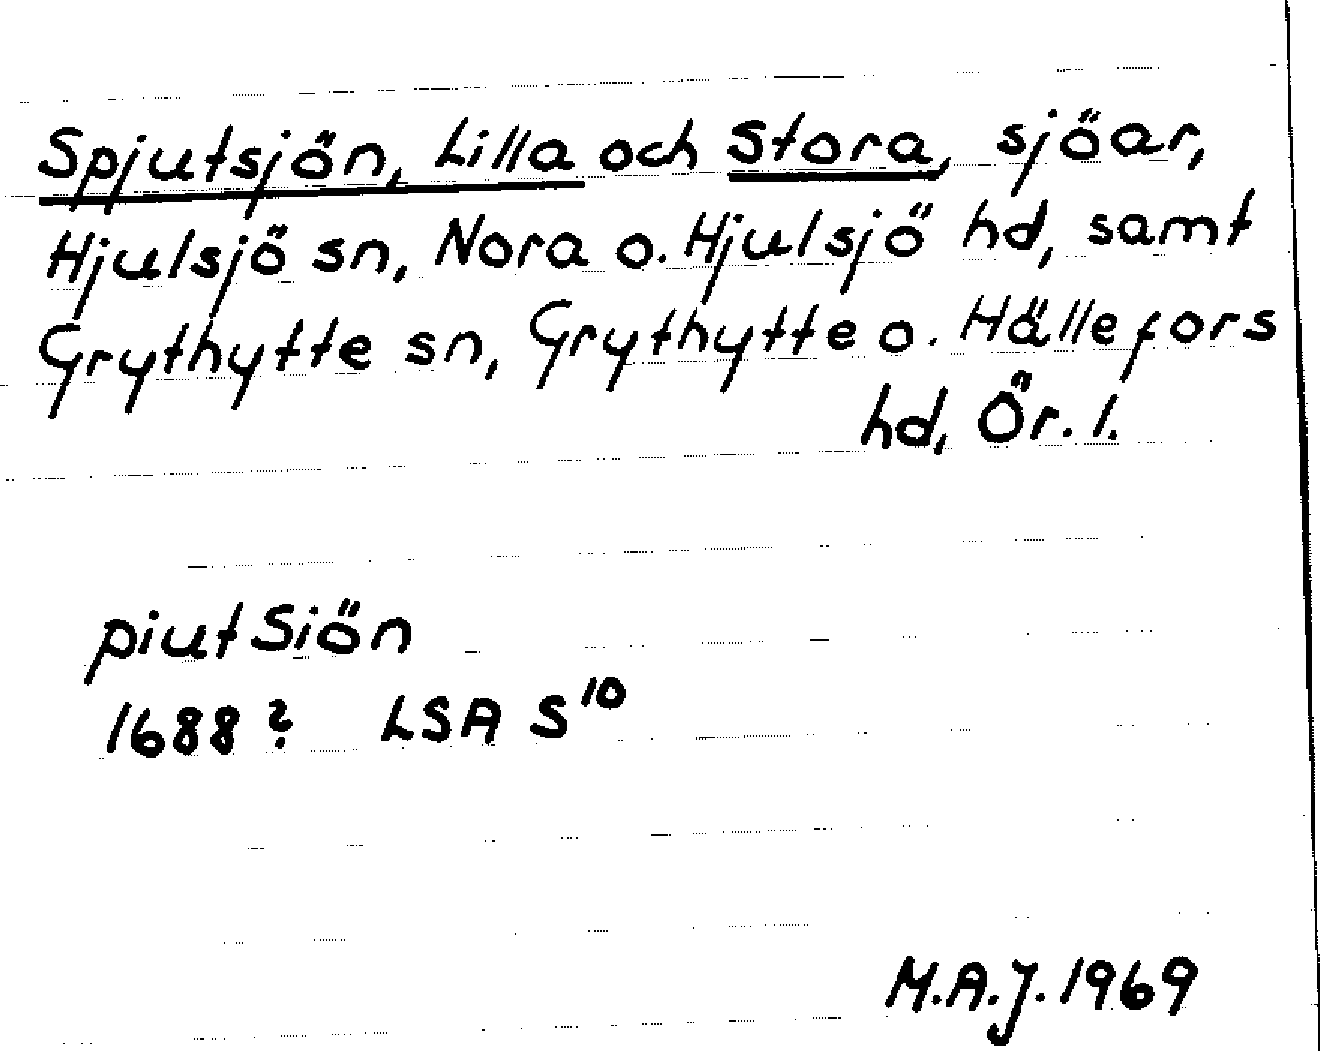 Spjutsjön, Lilla och Stora, sjöar,
Hjulsjö sn, Nora o. Hjulsjö hd, samt
Grythytte sn, Grythytte o. Hällefors
hd, Ör. l.
piutSiön
1688? LSA S¹⁰
M.A.J. 1969